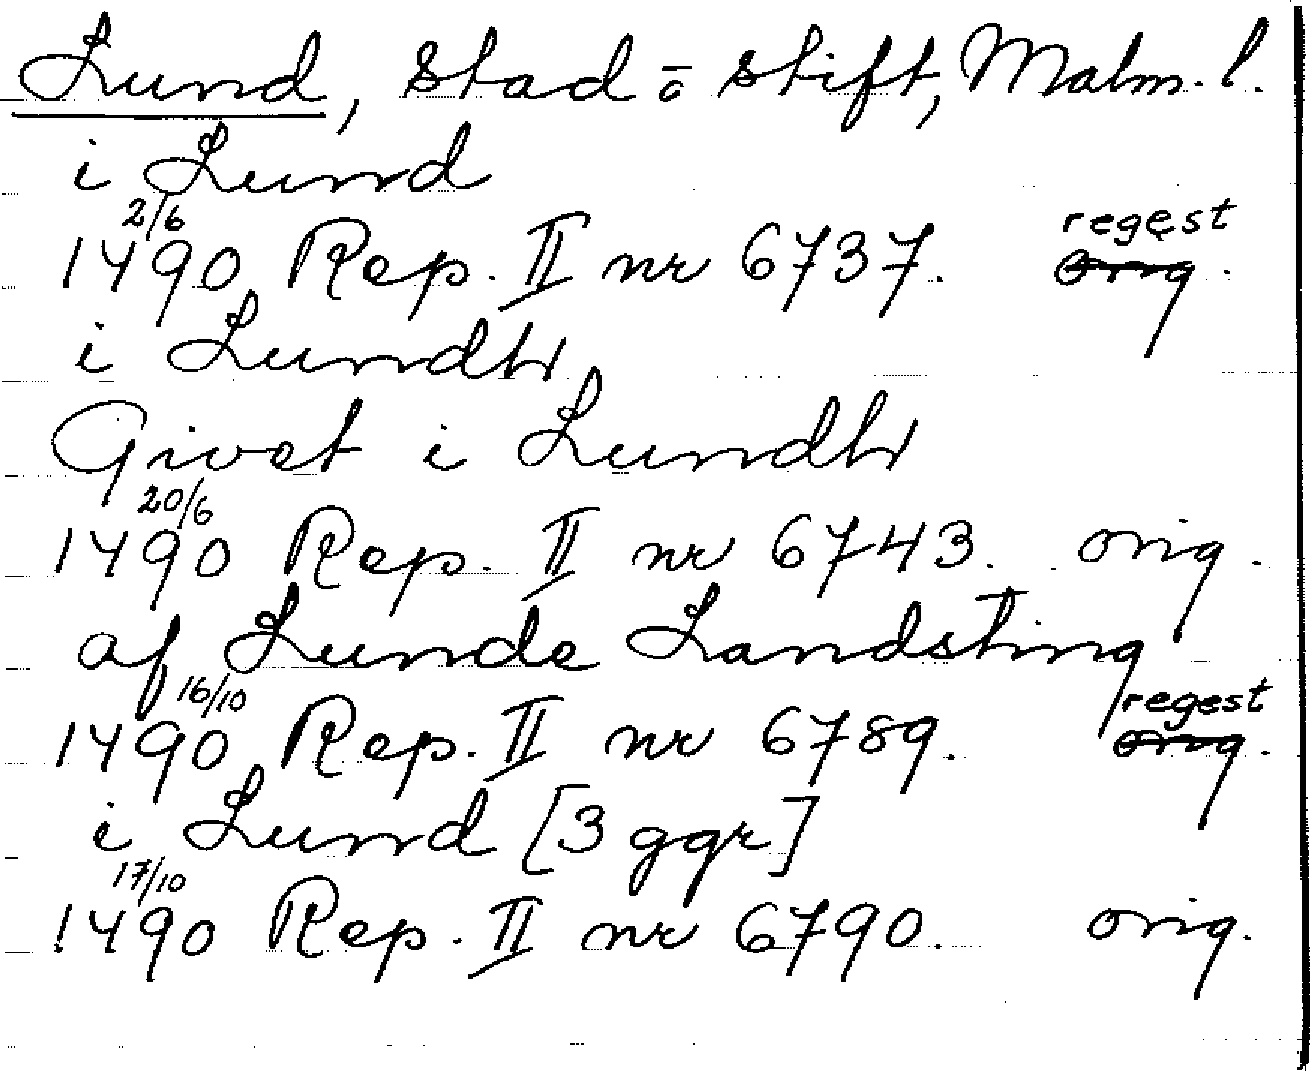 Lund, stad o stift, Malm. l.
i Lund
2/6 regest
1490 Rep. II nr 6737. orig.
i Lundh
Givet i Lundh
20/6
1490 Rep. II nr 6743. orig.
af Lunde Landsting
16/10 regest
1490 Rep. II nr 6789. orig.
i Lund [3 ggr]
17/10
1490 Rep. II nr 6790. orig.